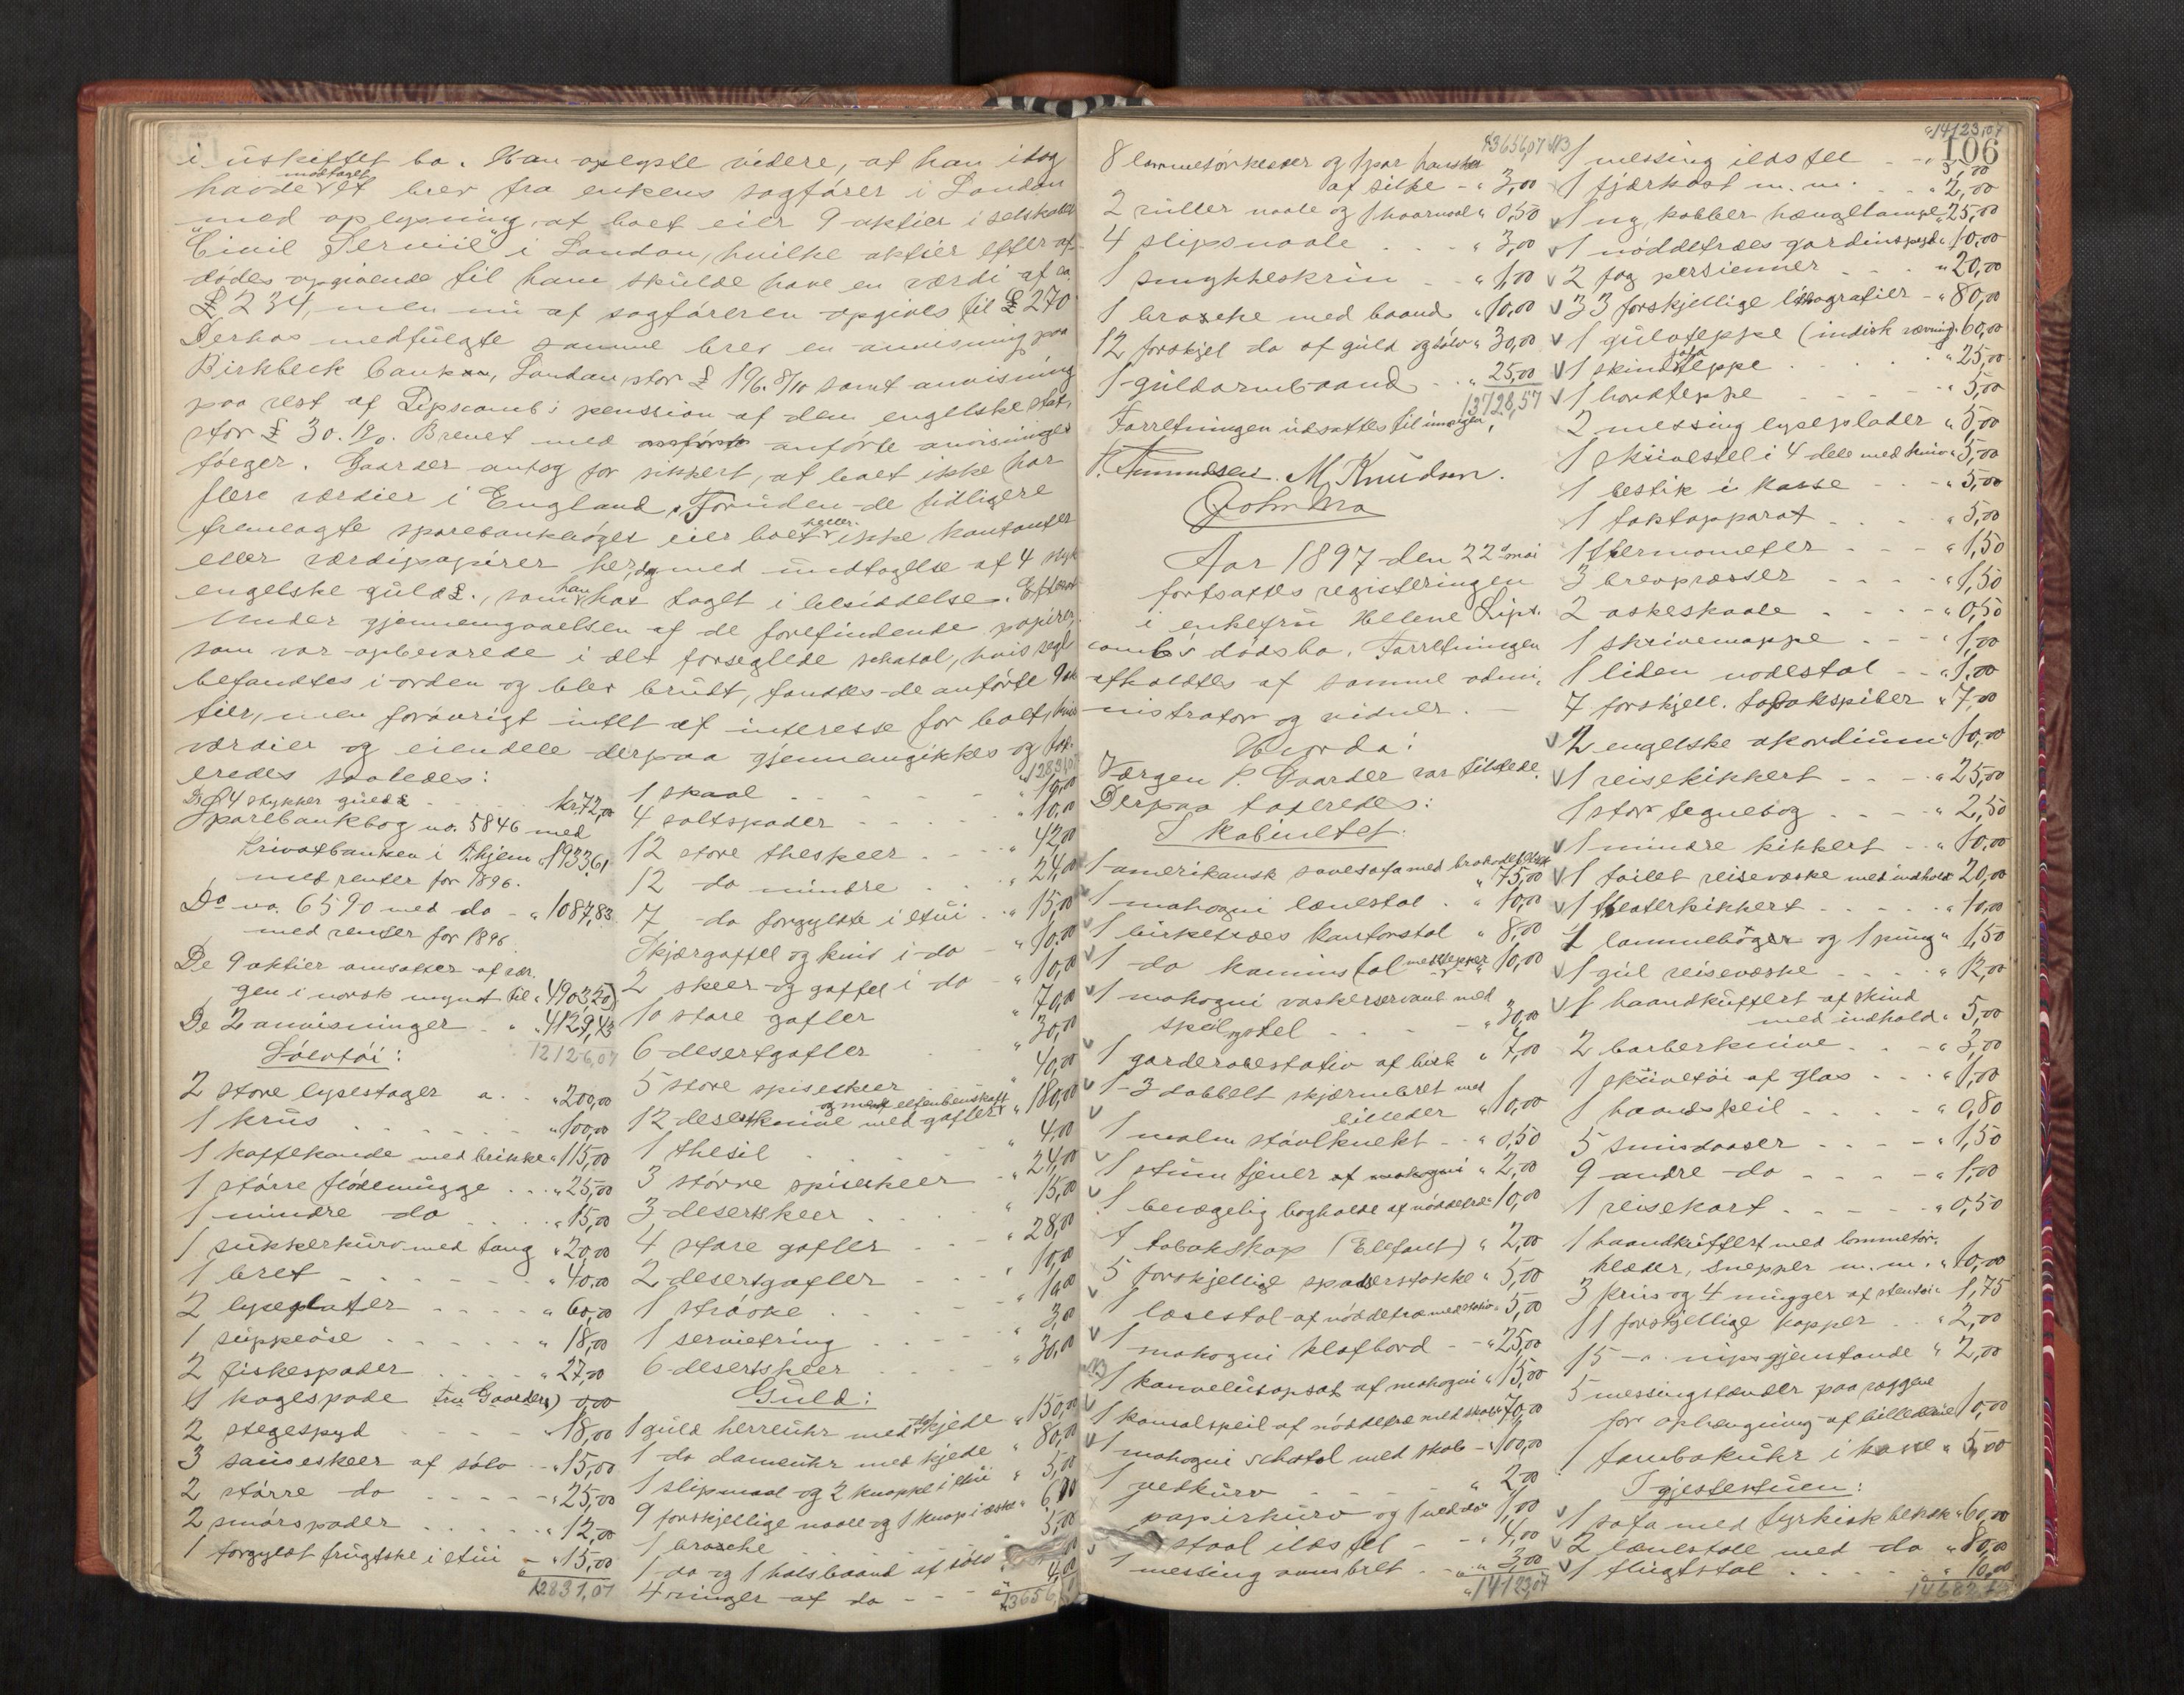 i uskiftet bo. Han oplyste videre, at han idag
havde modtaget et brev fra enkens sagfører i London
med oplysning, at boet eier 9 aktier i selskabet
"Civil Servise" i London, hvilke aktier efter af-
dødes opgivende til ham skulde have en værdi af ca
£ 234, men nu af sagføreren opgives til £ 270
Derhos medfulgte samme brev en anvisning paa
Birkbeck bank, London, stor £ 196. 8/10 samt anvisning
paa rest af Lipscomb's pension af den engelske stat,
stor £ 30. 19/0. Brevet med anførte anvisninger
følger. Gaarder antog for sikkert, at boet ikke har
flere værdier i England. Foruden de tidligere
fremlagte sparebankbøger eier boet heller ikke kontanter
eller værdipapirer her, dog med undtagelse af 4 styk
engelske guld£., som han har taget i besiddelse. Efterat
under gjennemgaaelsen af de forefindende papirer,
som var opbevarede i det forseglede schatol, hvis segl
befandtes i orden og blev brudt, fandtes de anførte 9 ak
tier, men forøvrigt intet af interesse for boet, hvis
værdier og eiendele derpaa gjennemgikkes og tax-
eredes saaledes:
De 4 stykker guld£ kr. 72,00
Sparebankbog no. 5846 med
Privatbanken i Thjem " 1933,61
med renter for 1896.
Do no. 6590 med do - " 1087,83
med renter for 1896
De 9 aktier omsatter af vær-
gen i norsk mynt til " 4903,20
De 2 anvisninger " 4129,43
12126,07
Sølvtøi:
2 store lysestager a. " 200,00
1 krus " 100,00
1 kaffekande med brikke " 115,00
1 større flødemugge " 25,00
1 mindre do " 15,00
1 sukkerkurv med tang " 20,00
1 bret " 40,00
2 lyseplater " 60,00
1 suppeøse " 18,00
2 fiskespader " 27,00
1 kagespade fru Gaarders) 0,00
2 stegespyd " 18,00
3 sauseskeer af sølv " 15,00
2 større do " 25,00
2 smørspader " 12,00
1 forgyldt frugtske i etui " 15,00
12831,07
12831,07
1 skaal " 10,00
4 saltspader " 10,00
12 store theskeer " 42,00
12 do mindre " 24,00
7 do forgyldte i etui " 15,00
Skjærgaffel og kniv i do " 10,00
2 skeer og gaffel i do " 10,00
10 store gafler " 70,00
6 desertgafler " 30,00
5 store spiseskeer " 40,00
12 desertknive med gafler og med elfenbenskaft " 180,00
1 thesil " 4,00
3 større spiseskeer " 24,00
3 desertskeer " 15,00
4 store gafler " 28,00
2 desertgafler " 10,00
1 strøske " 10,00
1 servietring " 3,00
6 desertskeer " 30,00
Guld:
1 guld herreuhr med kjede " 150,00
1 do dameuhr med kjede " 80,00
1 slipsnaal og 2 knapper i etui " 5,00
9 forskjellige naale og 1 knap i æske " 6,00
1 brosche " 5,00
1 do og 1 halsbaand af sølv
4 ringer af do - - " 4,00
13656,07
13656,07
8 lommetørklæder og 1 par hansker
af silke - " 3,00
2 ruller naale og 1 haarnaal " 0,50
4 slipsnaale " 3,00
1 smykkeskrin " 1,00
1 brosche med baand " 10,00
12 forskjel do af guld og sølv " 30,00
1 guldarmbaand " 25,00
13728,57
Forretningen udsattes til imorgen.
P. Amundsen. M. Knudsen.
John Mo
Aar 1897 den 22de mai
fortsattes registreringen
i enkefru Helene Lips-
comb's dødsbo. Forretningen
afholdtes af samme admi-
nistrator og vidner. —
Hvorda:
Værgen P. Gaarder var tilstede.
Derpaa taxeredes:
I kabinettet:
1 amerikansk sovesofa med brokadebetræk " 75,00
1 mahogni lænestol " 10,00
1 birketræes kontorstol " 8,00
1 do kaminstol med tepper " 10,00
1 mahogni vaskerservant med
speil " 30,00
1 garderobestativ af birk " 7,00
1 3 dobbelt skjærmbret med
billeder " 10,00
1 malm støvlknekt " 0,50
1 stum tjener af mahogni " 2,00
1 bevægelig boghylde af nøddetræ " 10,00
1 tobakskop (Elefant) " 2,00
5 forskjellige spaserstokke " 5,00
1 læsestol af nøddetræ med stativ " 5,00
1 mahogni klafbord - " 25,00
1 konvelutopsat af mahogni " 15,00
1 konsolspeil af nøddetræ med skab " 70,00
1 mahogni schatol med skab - " 100,00
1 vedkurv " 2,00
papirkurv og 1 ved do " 1,00
staal ildstel - " 4,00
1 messing ovnsbret " 3,00
" 14123,07
" 14123,07
106
1 messing ildstel " 5,00
1 fjærkost m. m. " 2,00
1 ny kobber hængelampe " 25,00
1 nøddetræes gardinspyd " 10,00
2 fag persienner " 20,00
33 forskjellige lithografier " 80,00
1 gulvteppe (indisk vævning " 60,00
1 skind sofateppe " 25,00
1 bordteppe " 5,00
2 messing lyseplader " 5,00
1 skrivestel i 4 dele med kniv " 5,00
1 bestik i kasse " 5,00
1 taktapparat " 5,00
1 thermometer " 1,50
3 brevpresser " 1,50
2 askeskaale " 0,50
1 skrivemappe " 1,00
1 liden nodestol " 1,00
7 forskjell. tobakspiber " 7,00
2 engelske akordium " 10,00
1 reisekikkert " 25,00
1 stor tegnebog " 2,50
1 mindre kikkert " 10,00
1 toilet reisevæske med indhold 20,00
1 theaterkikkert " 10,00
1 lommebøger og 1 pung " 1,50
1 gul reisevæske " 12,00
1 haandkuffert af skind
med indhold " 5,00
2 barberknive " 3,00
1 skrivetøi af glas " 1,00
1 haandspeil " 0,80
5 snusdaaser " 1,50
9 andre do " 1,00
1 reisekart " 0,50
1 haandkuffert med lommetør-
klæder, snepper m. m. " 10,00
3 krus og 4 mugger af stentøi " 1,75
11 forskjellige kopper " 2,00
15 - " - nipsgjenstande " 2,00
5 messingstænder paa væggene
for ophængning af billeder " 10,00
1 tombakuhr i kasse " 5,00
I gjestestuen:
1 sofa med tyrkisk betræk " 60,00
2 lænestole med do " 80,00
1 flugtstol " 10,00